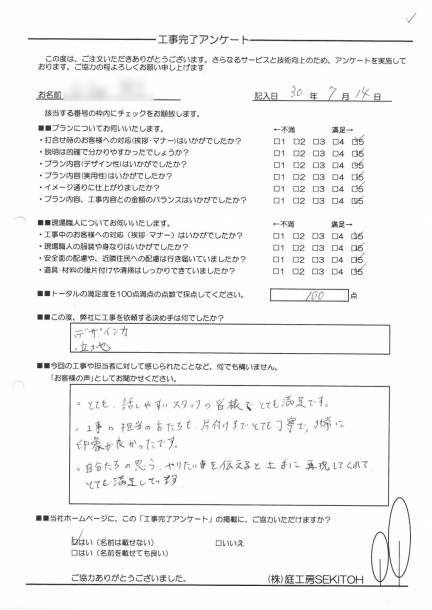 工事完了アンケート
この度は、ご注文いただきありがとうございます。さらなるサービスと技術向上のため、アンケートを実施して
おります。ご協力の程よろしくお願い申し上げます
お名前
記入日 30 年 7 月 14 日
該当する番号の枠内にチェックをお願致します。
■■プランについてお伺いいたします。 ←不満 満足→
・打合せ時のお客様への対応(挨拶・マナー)はいかがでしたか? □1 □2 □3 □4 ☑5
・説明は的確で分かりやすかったでしょうか? □1 □2 □3 □4 ☑5
・プラン内容(デザイン性)はいかがでしたか? □1 □2 □3 □4 ☑5
・プラン内容(実用性)はいかがでしたか? □1 □2 □3 □4 ☑5
・イメージ通りに仕上がりましたか? □1 □2 □3 □4 ☑5
・プラン内容、工事内容との金額のバランスはいかがでしたか? □1 □2 □3 □4 ☑5
■■現場職人についてお伺いいたします。 ←不満 満足→
・工事中のお客様への対応(挨拶・マナー)はいかがでしたか? □1 □2 □3 □4 ☑5
・現場職人の服装や身なりはいかがでしたか? □1 □2 □3 □4 ☑5
・安全面の配慮や、近隣住民への配慮は行き届いていましたか? □1 □2 □3 □4 ☑5
・道具・材料の後片付けや清掃はしっかりできていましたか? □1 □2 □3 □4 ☑5
■■トータルの満足度を100点満点の点数で採点してください。 100 点
■■この度、弊社に工事を依頼する決め手は何でしたか?
デザイン力
・立地
■■今回の工事や担当者に対して感じられたことなど、何でも構いません。
「お客様の声」としてお聞かせください。
・とても、話しやすいスタッフの皆様でとても満足です。
・工事の担当の方たちも片付けまでとても丁寧で、非常に
印象が良かったです。
・自分たちの思う、やりたい事を伝えると上手に再現してくれて
とても満足しています
■■当社ホームページに、この「工事完了アンケート」の掲載に、ご協力いただけますか?
☑はい(名前は載せない) □いいえ
□はい(名前を載せても良い)
ご協力ありがとうございました。
(株)庭工房SEKITOH